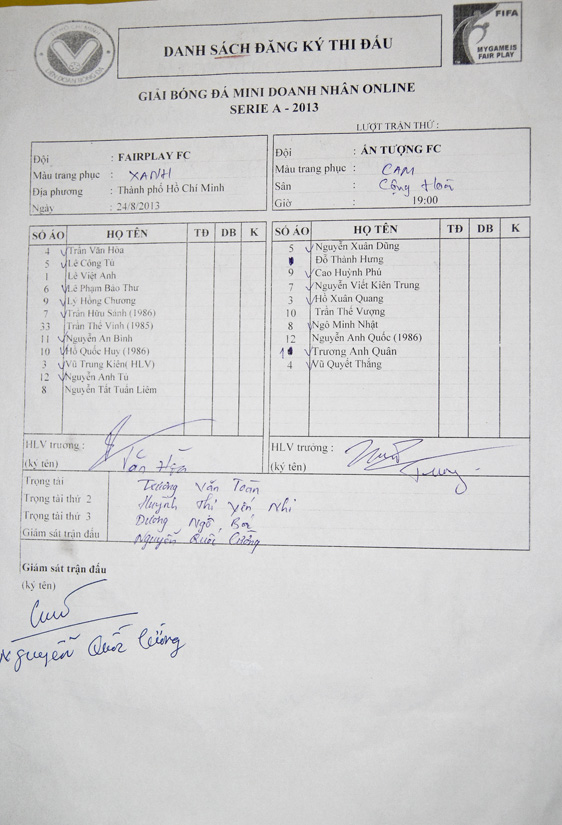 DANH SÁCH ĐĂNG KÝ THI ĐẤU
FIFA
MYGAMEIS
FAIR PLAY
GIẢI BÓNG ĐÁ MINI DOANH NHÂN ONLINE
SERIE A - 2013
LƯỢT TRẬN THỨ :
Đội : FAIRPLAY FC
Màu trang phục : XANH
Địa phương : Thành phố Hồ Chí Minh
Ngày : 24/8/2013
Đội : ẤN TƯỢNG FC
Màu trang phục : CAM
Sân : Cộng Hoà
Giờ : 19:00
SỐ ÁO HỌ TÊN TĐ DB K
4 Trần Văn Hòa
5 Lê Công Tú
1 Lê Việt Anh
6 Lê Phạm Bảo Thư
9 Lý Hồng Chương
7 Trần Hữu Sành (1986)
33 Trần Thế Vinh (1985)
11 Nguyễn An Bình
10 Hồ Quốc Huy (1986)
3 Vũ Trung Kiên( HLV)
12 Nguyễn Anh Tú
8 Nguyễn Tất Tuấn Liêm
SỐ ÁO HỌ TÊN TĐ DB K
5 Nguyễn Xuân Dũng
Đỗ Thành Hưng
9 Cao Huỳnh Phú
7 Nguyễn Viết Kiên Trung
3 Hồ Xuân Quang
10 Trần Thế Vượng
8 Ngô Minh Nhật
12 Nguyễn Anh Quốc (1986)
Trương Anh Quân
4 Vũ Quyết Thắng
HLV trưởng :
(ký tên) Văn Hòa
HLV trưởng :
(ký tên)
Trọng tài Trương Văn Toàn
Trọng tài thứ 2 Huỳnh Thị Yến Nhi
Trọng tài thứ 3 Dương Ngô
Giám sát trận đấu Nguyễn Quốc Cường
Giám sát trận đấu
(ký tên)
Nguyễn Quốc Cường